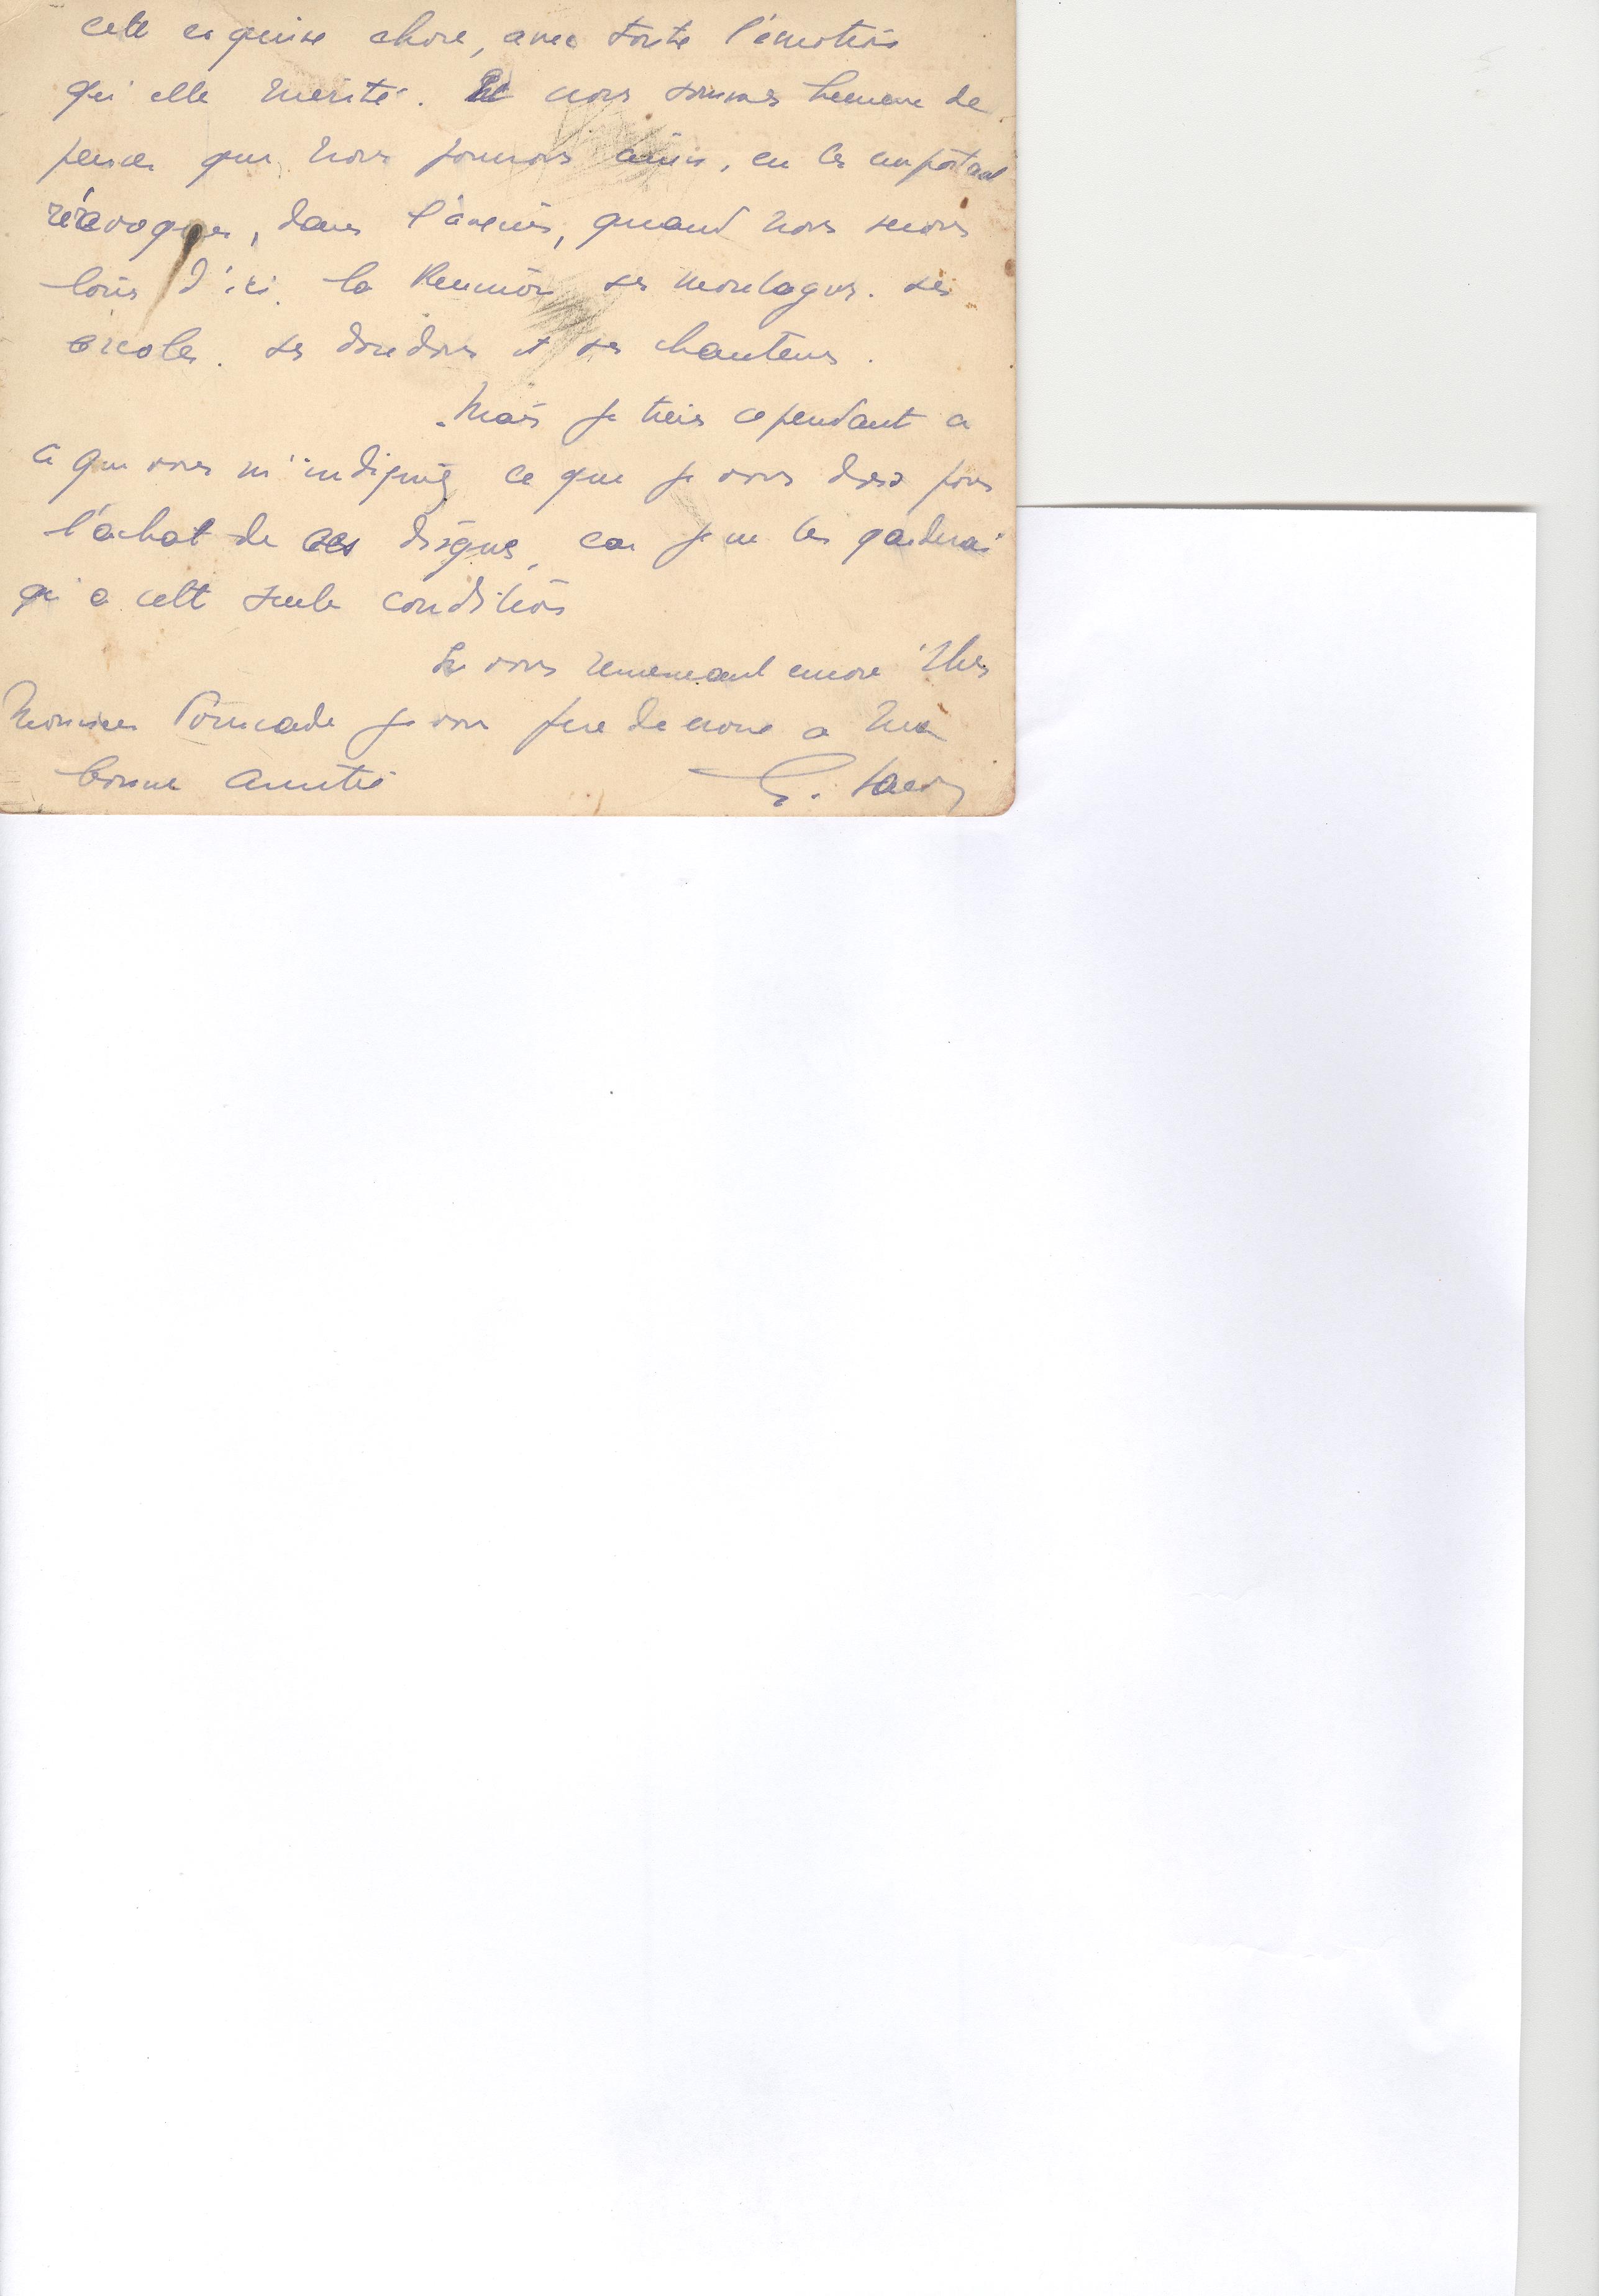 cette exquise chose, avec toute l'émotion
qu'elle mérite. Et nous sommes heureux de
penser que nous pourrons ainsi, en les emportant
réévoquer, dans l'avenir, quand nous serons
loin d'ici, la Réunion ses montagnes. ses
créoles. ses doudous et ses chanteurs.
Mais je tiens cependant a
ce que vous m'indiquiez ce que je vous dois pour
l'achat de ces disques, car je ne les garderai
qu'a cette seule condition
En vous remerciant encore cher
Monsieur Fourcade je vous prie de croire a ma
bonne amitié